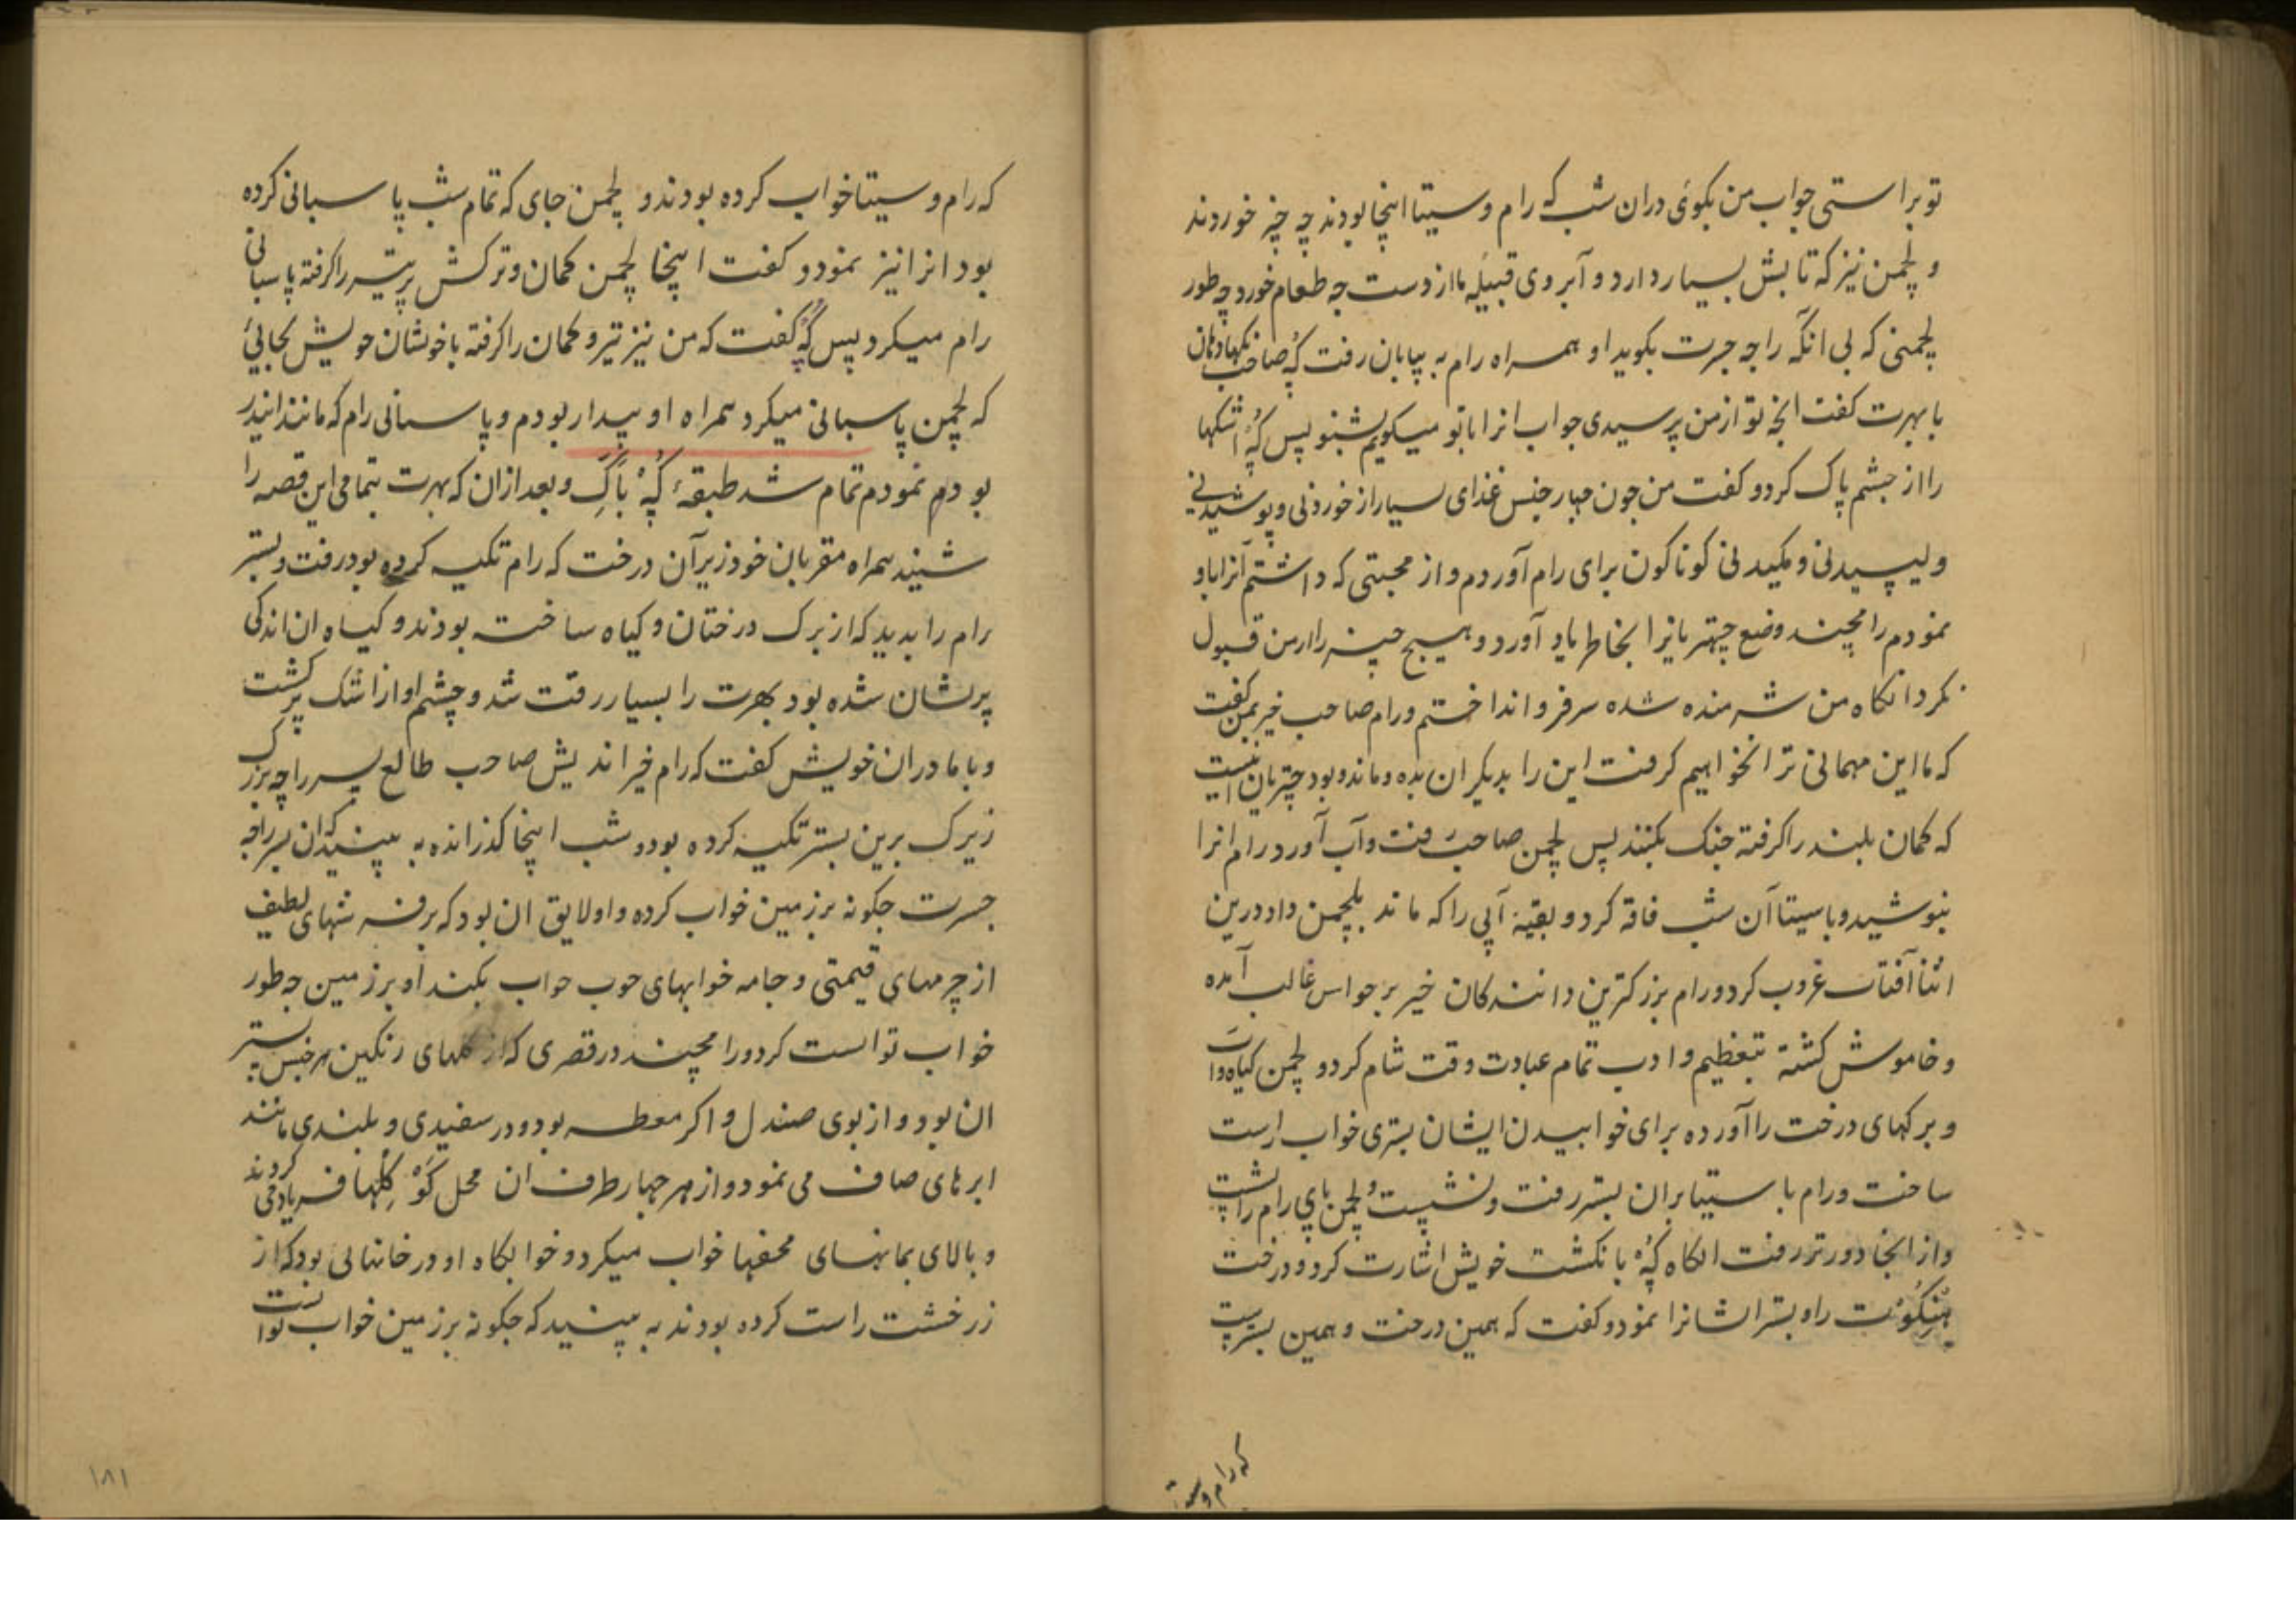 تو براستی جواب من بکوئی دران شب که رام و سیتا اینجا بودند چه چیز خوردند
و لچمن نیز که تابش بسیار دارد و آبروی قبیله ما از دست چه طعام خورد و چه طور
لچمنی که بی انکه راجه جسرت بکوید او همراه رام به بیابان رفت کُهْ صاحب نکهادان
با بهرت کفت انچه تو از من پرسیدی جواب انرا با تو میکویم بشنو پس کُهْ اشکها
را از چشم پاک کرد و کفت من چون چهار جنس غذای بسیار از خوردنی و پوشیدنی
و لیسیدنی و مکیدنی کوناکون برای رام آوردم و از محبتی که داشتم آنرا باو
نمودم رامچند وضع چهتریانرا بخاطر یاد آورد و هیچ چیز را از من قبول
نکرد انکاه من شرمنده شده سر فرو انداختم و رام صاحب خیر بمن کفت
که ما این مهمانی ترا نخواهیم کرفت این را بدیکران بده و ماند و بود چتریان اینست
که کمان بلند را کرفته جنک بکنند پس لچمن صاحب رفت و آب آورد رام انرا
بنوشید و با سیتا آن شب فاقه کرد و بقیهٔ آبی را که ماند بلچمن داد درین
اثنا آفتاب غروب کرد و رام بزرکترین دانندکان خیر بر حواس غالب آمده
و خاموش کشته بتعظیم و ادب تمام عبادت وقت شام کرد و لچمن کیاه
و برکهای درخت را آورده برای خوابیدن ایشان بستری خواب راست
ساخت و رام با سیتا بران بستر رفت و نشست و لچمن پای رام را
و از انجا دورتر رفت انکاه کُهْ بانکشت خویش اشارت کرد و درخت
هنکوت را و بستر ایشانرا نمود و کفت که همین درخت و همین بسترست
که رام و سیتا
که رام و سیتا خواب کرده بودند و لچمن جای که تمام شب پاسبانی کرده
بود انرا نیز نمود و کفت اینجا لچمن کمان و ترکش پر تیر را کرفته پاسبانی
رام میکرد پس کُهْ کفت که من نیز تیر و کمان را کرفته با خویشان خویش بجائی
که لچمن پاسبانی میکرد همراه او بیدار بودم و پاسبانی رام که مانند اندر
بودم نمودم تمام شد طبقهٔ کُهْ باک و بعد ازان که بهرت بتمامی این قصه را
شنید همراه مقربان خود زیر آن درخت که رام تکیه کرده بود رفت و بستر
رام را بدید که از برک درختان و کیاه ساخته بودند و کیاه ان اندکی
پریشان شده بود بهرت را بسیار رقت شد و چشم او از اشک پر کشت
و با مادران خویش کفت که رام خیراندیش صاحب طالع پسر راجه بزرک
زیرک برین بستر تکیه کرده بود و شب اینجا کذرانده به بینید که ان پسر راجه
جسرت چکونه بر زمین خواب کرده و او لایق ان بود که بر فرشهای لطیف
از چرمهای قیمتی و جامه خوابهای خوب خواب بکند او بر زمین چه طور
خواب توانست کرد و رامچند در قصری که از کلهای رنکین هر جنس بستر
ان بود و از بوی صندل و اکر معطر بود و در سفیدی و بلندی مانند
ابرهای صاف می نمود و از هر چهار طرف ان محل کوکلها فریاد می کردند
و بالای محفها خواب میکرد و خوابکاه او در خانهائی بود که از
زر خشت راست کرده بودند به بینید که چکونه بر زمین خواب توانست
۱۸۱